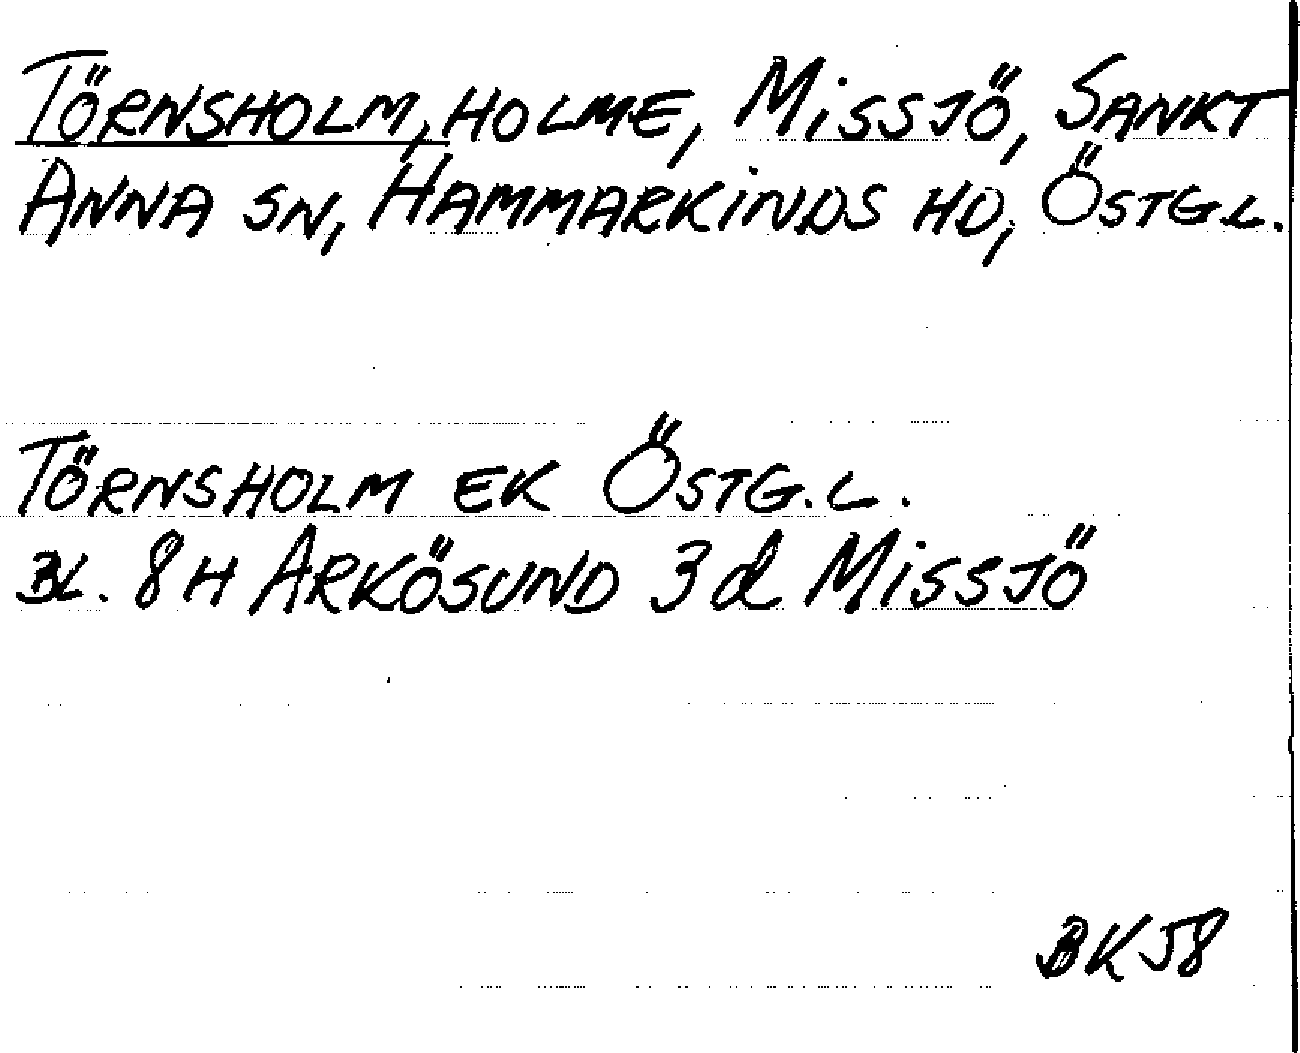 TÖRNSHOLM, HOLME, MISSJÖ, SANKT
ANNA SN, HAMMARKINDS HD, ÖSTG.L.
TÖRNSHOLM EK ÖSTG.L.
BL. 8H ARKÖSUND 3d MISSJÖ
BK58